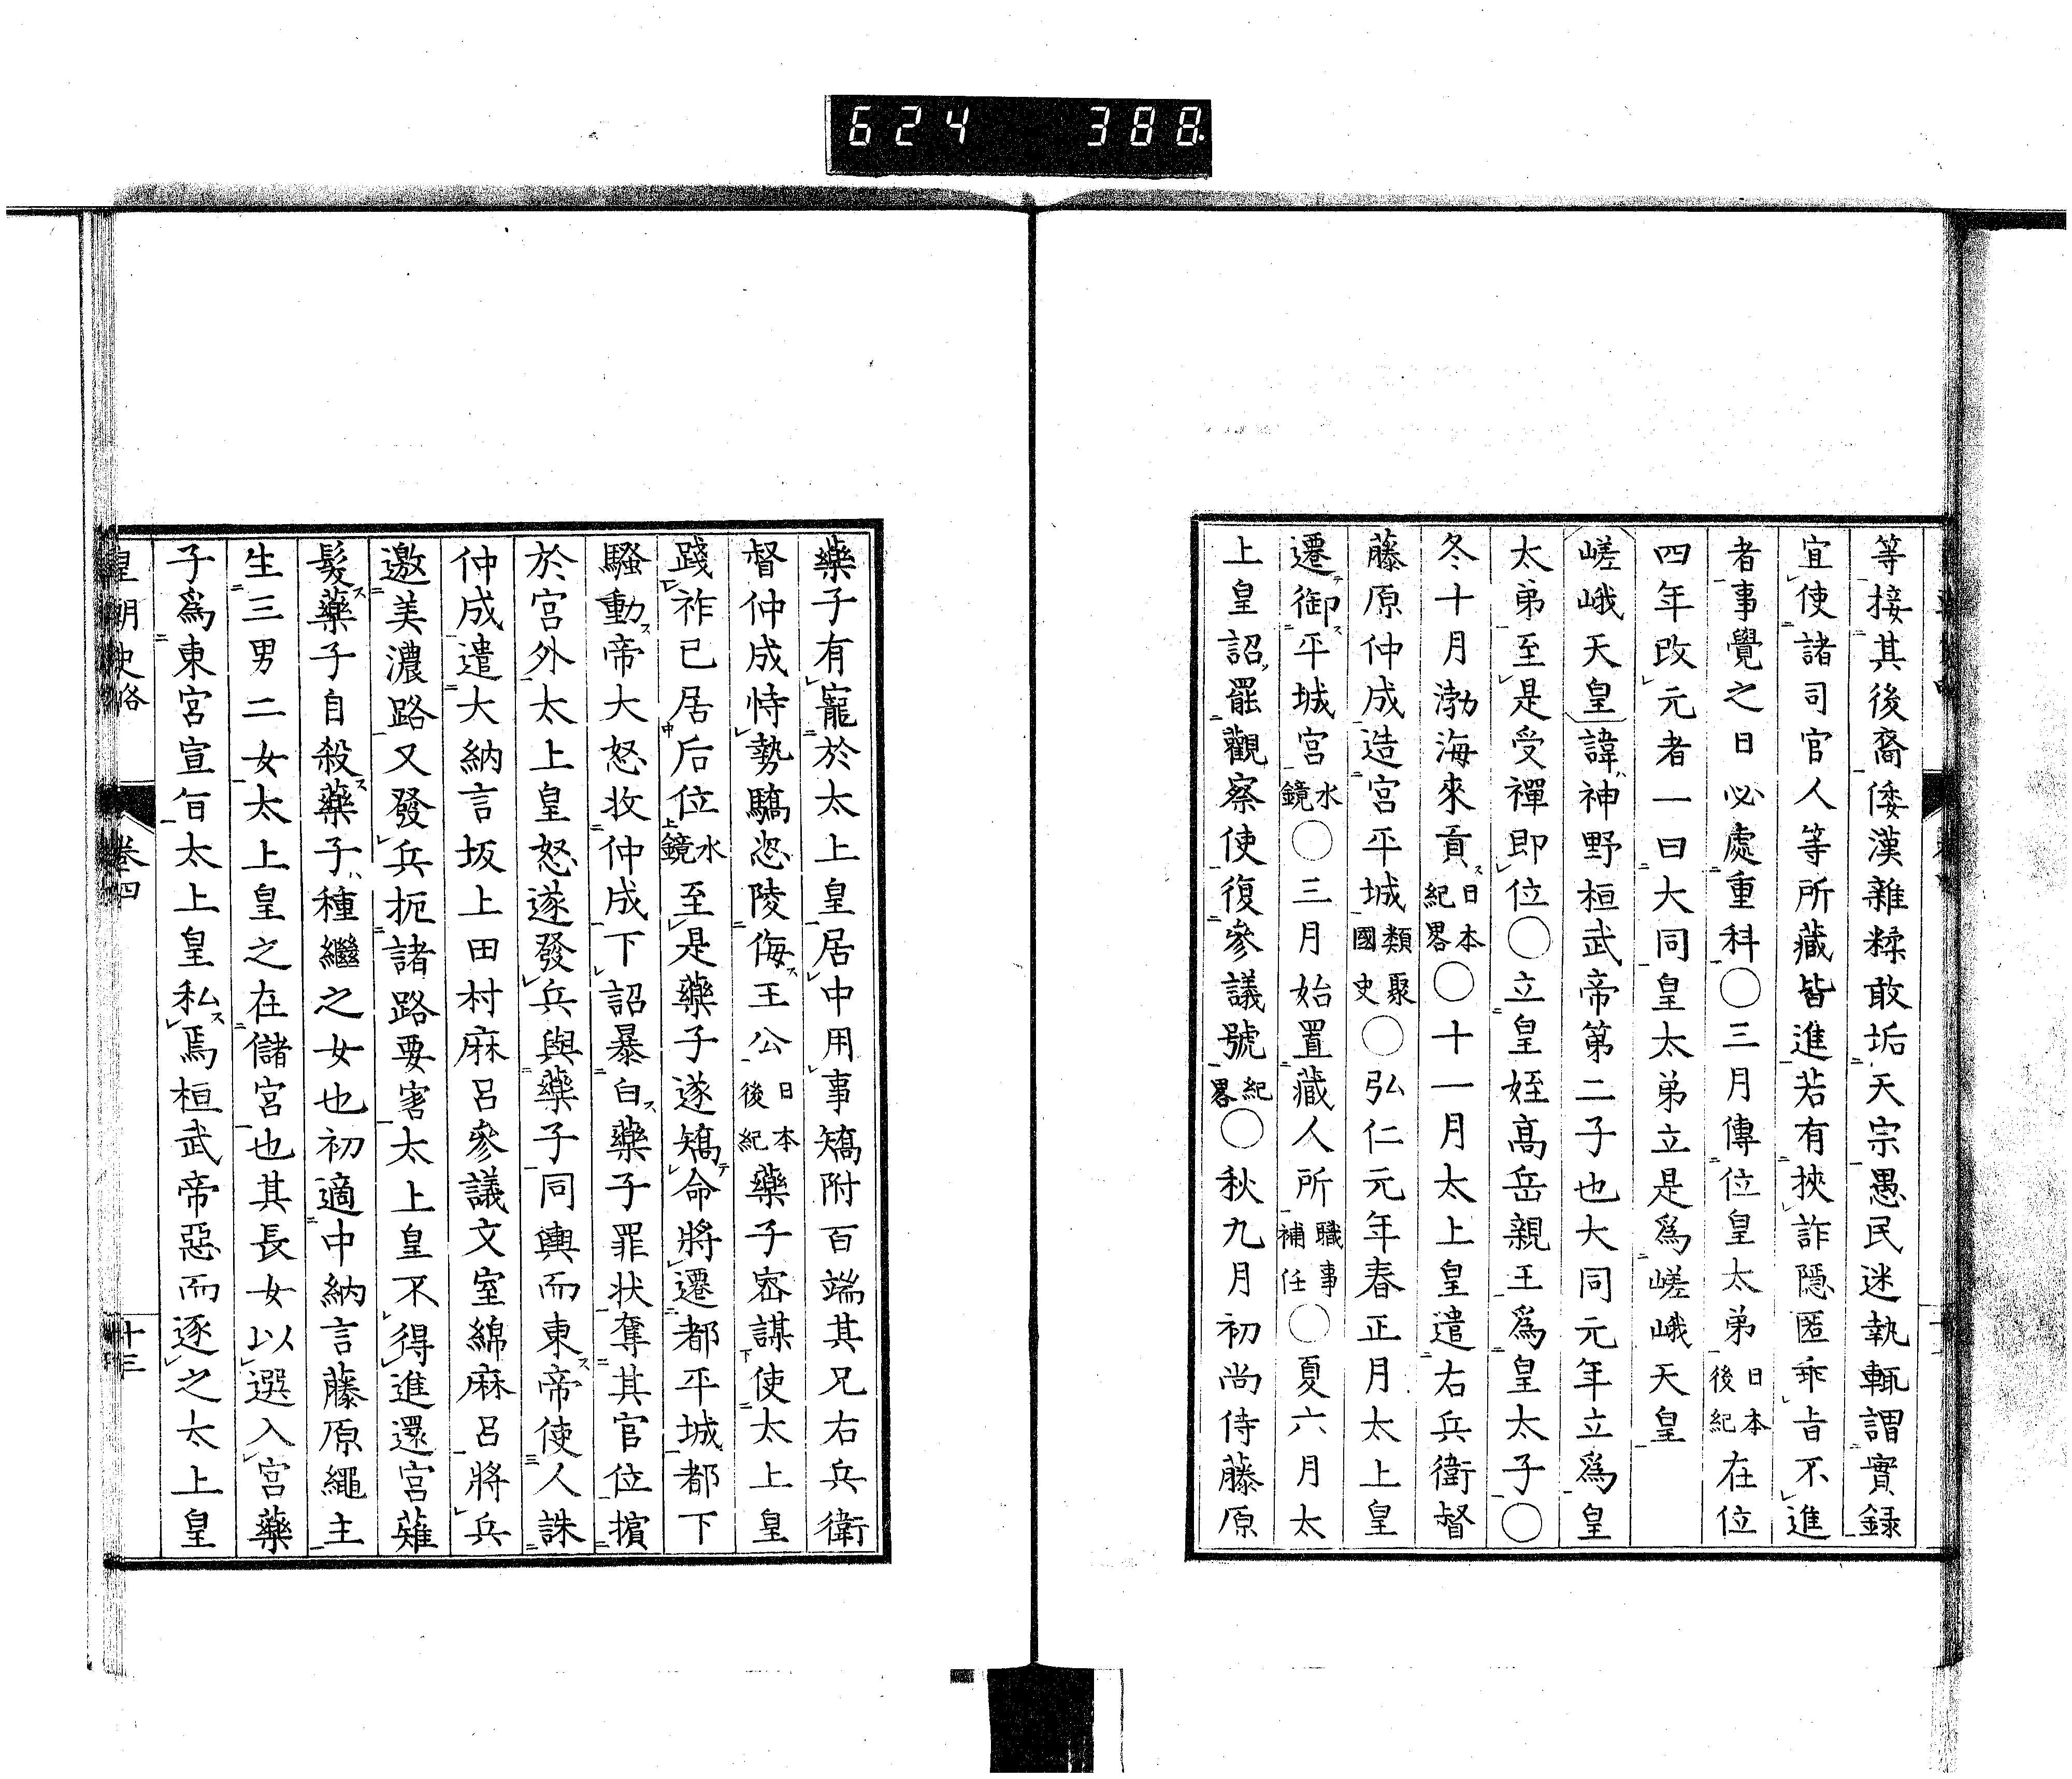 624 388
等接其後裔倭漢雜糅敢垢天宗愚民迷執輒謂實録
宜使諸司官人等所藏皆進若有挾詐隱匿乖旨不進
者事覺之日必處重科〇三月傳位皇太弟日本後紀在位
四年改元者一曰大同皇太弟立是爲嵯峨天皇
嵯峨天皇諱神野桓武帝第二子也大同元年立爲皇
太弟至是受禪即位〇立皇姪高岳親王爲皇太子〇
冬十月渤海來貢日本紀畧〇十一月太上皇遣右兵衛督
藤原仲成造宮平城類聚國史〇弘仁元年春正月太上皇
遷御平城宮水鏡〇三月始置藏人所職事補任〇夏六月太
上皇詔罷觀察使復參議號紀畧〇秋九月初尚侍藤原
藥子有寵於太上皇居中用事矯附百端其兄右兵衛
督仲成恃勢驕恣陵侮王公日本後紀藥子密謀使太上皇
踐祚已居后位水鏡至是藥子遂矯命將遷都平城都下
騷動帝大怒收仲成下詔暴白藥子罪状奪其官位擯
於宮外太上皇怒遂發兵與藥子同輿而東帝使人誅
仲成遣大納言坂上田村麻呂參議文室綿麻呂將兵
邀美濃路又發兵扼諸路要害太上皇不得進還宮薙
髮藥子自殺藥子種繼之女也初適中納言藤原繩主
生三男二女太上皇之在儲宮也其長女以選入宮藥
子爲東宮宣旨太上皇私焉桓武帝惡而逐之太上皇
皇朝史略 卷四 十三